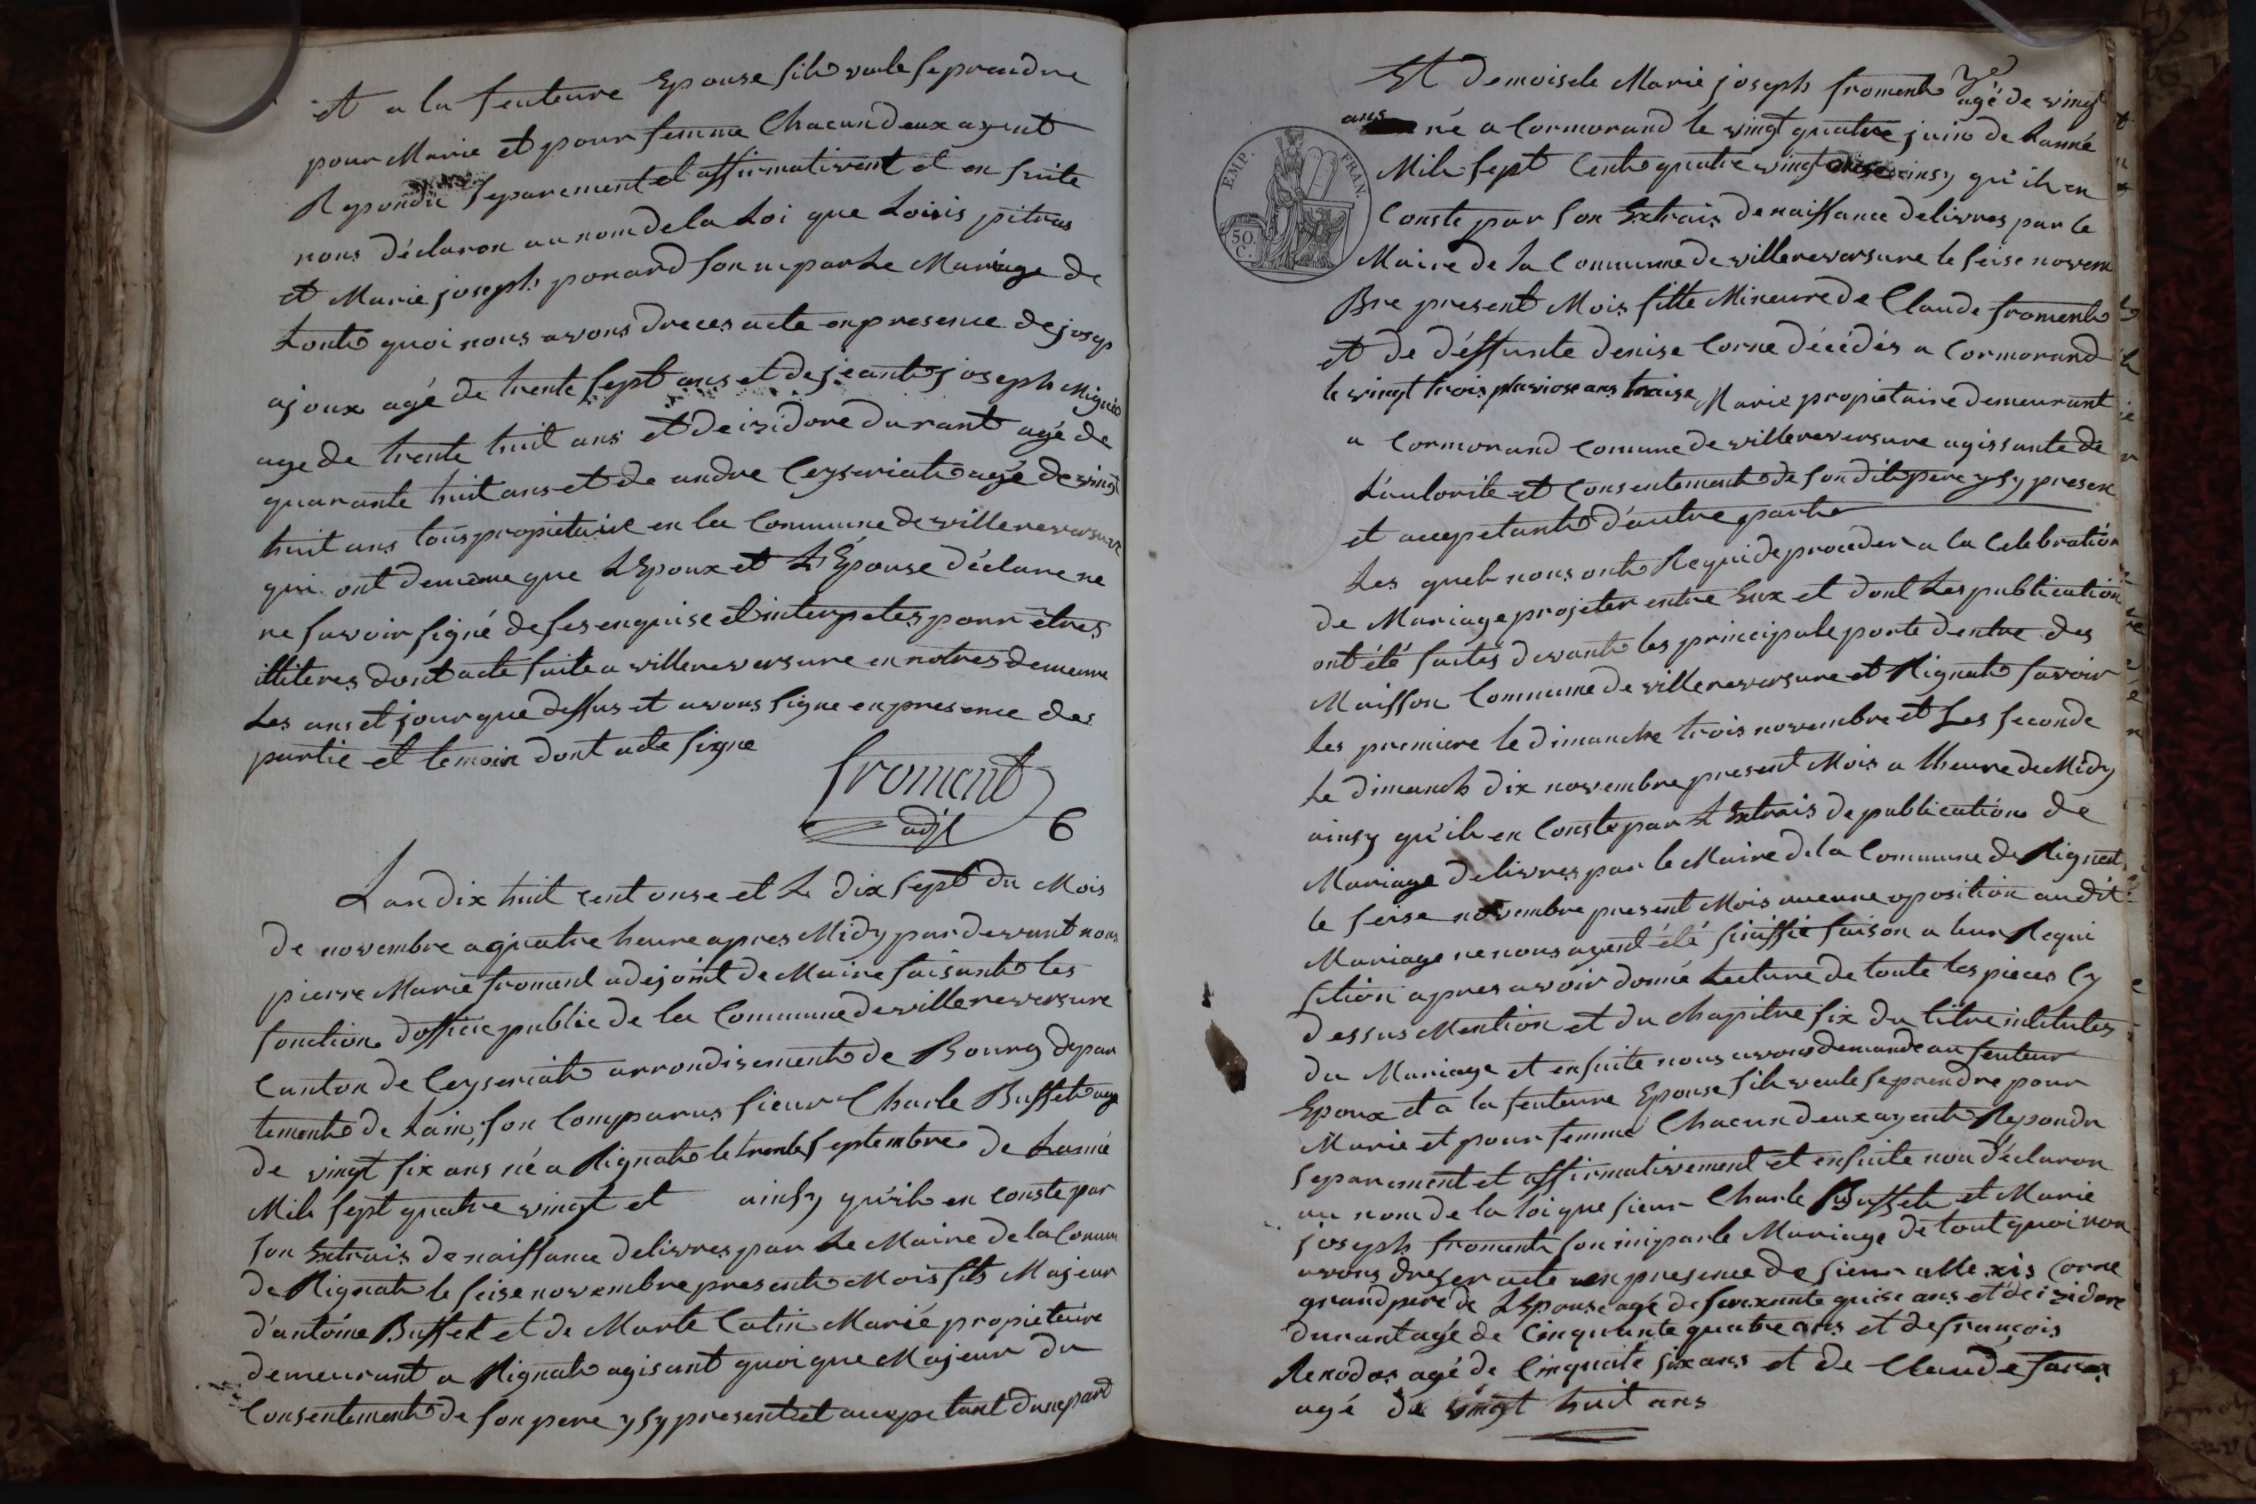 et a la feuteure Epouse sih veule se prendre
pour Marie et pour femme Chacun deux ayent
Repondu separement et affirmativent et en suite
nous déclaron au nom de la Loi que Loiis pitras
et Marie joseph ponard son u par Le Mariage de
tout quoi nous avons dreces acte en presence de josep
ajoux agé de trente sept ans et de jeant joseph
age de trente huit ans et de isidore durant agé de
quarante huit ans et de andre Ceyseriat agé de vingt
huit ans tous propietaire en la Commune de villereversure
qui ont de meme que LEpoux et L'Epouse déclare ne
ne savoir signé de ses enquise et interpeles pour êtres
illiteres dont acte faite a villereversure en notres demeure
Les ans et jour que dessus et avons signe en presence des
partie et temoin dont acte signe
froment
adjt 6
Lan dix huit cent onse et Le dix sept du Mois
de novembre a quatre heure apres Midy par devant nous
pierre Marie froment adejoint de Maire faisant les
fonction d'officie public de la Commune de villereversure
Canton de Ceyseriat arrondisement de Bourg depar
tement de Lain, son Comparus sieur Charle Buffet age
de vingt six ans né a Rignat le trente septembre de Lanné
Mil sept quatre vingt et ainsy qu'ih en Conste par
son Extrais de naissance delivres par Le Maire de la Comun
de Rignat le seise novembre present Mois fils Majeur
d'antoine Buffet et de Marte Catin Marié propietaire
demeurant a Rignat agisant quoi que Majeur du
Consentement de son pere y sy present et accepetant dune part
Et demoisele Marie joseph froment agé de vingt
ans né a Cormorand le vingt quatre juin de Lanné
Mil sept Cent quatre vingt onse ainsy qu'ih en
Conste par son Extrais de naissance delivres par le
EMP. FRAN.
50. C.
Maire de la Commune de villereversure le seise novem
Bre present Mois fille Mineure de Claude froment
et de déffunte denise Corne décédés a Cormorand
le vingt trois pluviose ans traise, Marie propietaire demeurant
a Cormorand Comune de villereversure agissante de
L'autorite et Consentement de son dit pere y sy presen
et accepetant d'autre part
Les queh nous ont Requi de proceder a la Celebration
de Mariage projeter entre Eux et dont Les publication
ont été faites devant les principale porte dentre des
Maisson Commune de villereversure et Rignat savoir
les premiere le dimanche trois novembre et Les seconde
Le dimanch dix novembre present Mois a lheure de Midy
ainsy qu'ih en Conste par L Extrais de publication de
Mariage delivres par le Maire de la Commune de Rignat
le seise novembre present Mois aucune oposition au dit
Mariage ne nous ayent été sinifie faison a leur Requi
sition apres avoir donné Lecture de toute les pieces Cy
dessus Mention et du chapitre six du titre intitules
du Mariage et ensuite nous avons demande au feuteur
Epoux et a la feuteure Epouse sih veule se prendre pour
Marie et pour femme Chacun deux ayent Repondu
separement et affirmativement et ensuite nou déclaron
au nom de la loi que sieur Charle Buffet et Marie
joseph froment son uni par le Mariage de tout quoi nou
avons dreser acte en presence de sieur allexis Corne
grand pere de LEpouse agé de soixante quise ans et de isidore
durant agé de Cinquante quatre ans et de françois
Renodas agé de Cinquante six ans et de Claude
agé de vingt huit ans